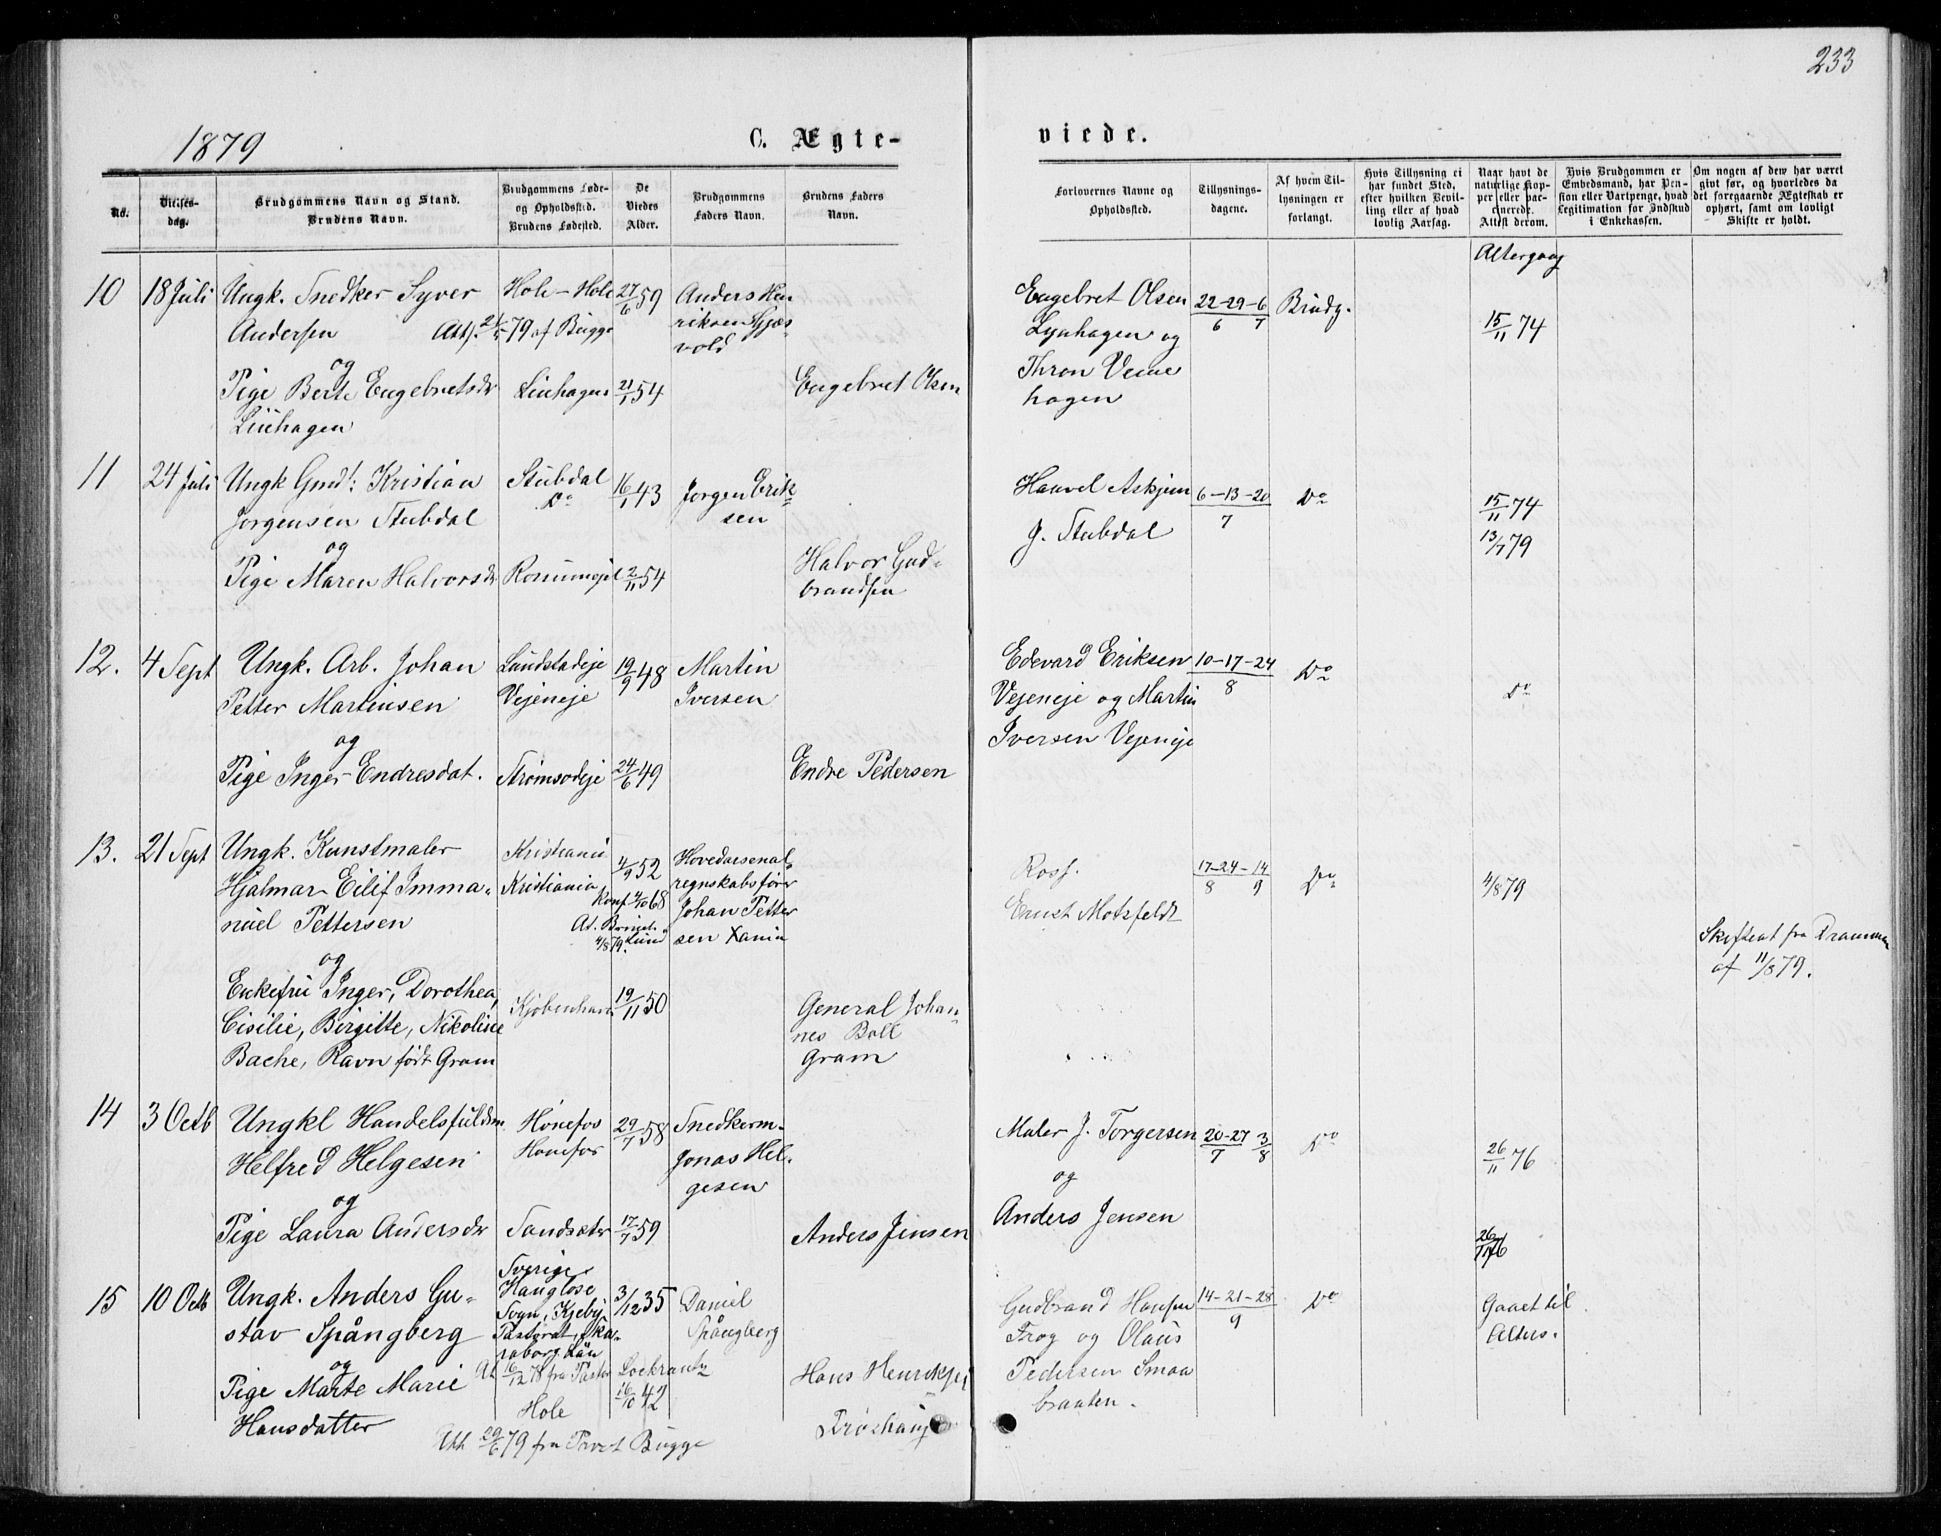 233
1879
C. Ægte-
viede.
No.
Vielses-
dag.
Brudgommens Navn og Stand.
Brudens Navn.
Brudgommens Føde-
og Opholdssted.
Brudens Fødested.
De
Viedes
Alder.
Brudgommens
Faders Navn.
Brudens Faders
Navn.
Forlovernes Navne og
Opholdssted.
Tillysnings-
dagene.
Af hvem Til-
lysningen er
forlangt.
Hvis Tillysning ei
har fundet Sted,
efter hvilken Bevil-
ling eller af hvad
lovlig Aarsag.
Naar havt de
naturlige Kop-
per eller vac-
cinerede.
Attest derom.
Hvis Brudgommen er
Embedsmand, har Pen-
sion eller Vartpenge, hvad
Legitimation for Indskud
i Enkekassen.
Om nogen af dem har været
gift før, og hvorledes da
det foregaaende Ægteskab er
ophørt, samt om lovligt
Skifte er holdt.
Altergang
10 18 Juli Ungk. Snedker Syver Hole - Hole 27/6 59 Anders Hen
Andersen 79 af Bugge riksen
vold
og
Pige Berte Engebretsdr Linhagen 21/1 54 Engebret Olsen
Linhagen
Engebret Olsen 22-29-6 Brudg.
6 7
Lynhagen og 15/11 74
Thron
hagen
11 24 Juli Ungk Gmd: Kristian Stubdal 16/1 43 Jorgen Erik
Jorgensen Stubdal Do sen
og
Pige Maren Halvorsdr 2/11 54 Halvor Gud-
brandsen
Haavel Askjem 6-13-20 Do 15/11 74
J. Stubdal 7 13/7 79
12. 4 Sept Ungk. Arb. Johan Lundstadeje 19/9 48 Martin
Petter Martinsen Vejeneje Iversen
og
Pige Inger Endresdat. Strømsodeje 24/6 49 Endre Pedersen
Edevard Eriksen 10-17-24 Do Do
Vejeneje og Martin 8
Iversen Vejeneje
13. 21 Sept Ungk. Kunstmaler Kristiania 4/9 52 Hovedarsenal
Hjalmar Eilif Imma- Kristiania regnskabsfører
Konf. 4/10 68 Johan Petter
nuel Pettersen sen Xania
4/8 79.
og
Enkefru Inger, Dorothea, Kjøbenhavn 19/11 50 General Johan-
Cisilie, Birgitte, Nikoline nes Boll
Bache, Ravn født Gram Gram
17-24-14 Do 4/8 79
8 9
Ernst Motzfeldt
Skifteat fra Drammen
af 11/8 79.
14 3 Octb Ungkl Handelsfuldm. Hønefos 29/7 58 Snedkerm.
Helfred Helgesen Hønefos Jonas Hel-
gesen
og
Pige Laura Andersdr Sandsater 17/7 59 Anders Jensen
Maler J. Torgersen 20-27 3 Do 26/11 76
7 8
og
Anders Jensen 26/11 76
15 10 Octb Ungk. Anders Gu- Sverige 3/12 35 Daniel
stav Spångberg Sogn, Kjeby Spångberg
Pastorat, Ska-
raborg Län
og At 16/12 78 fra Pastor
Pige Marte Marie Hole 16/10 42 Hans Henriksen
Hansdatter Frøshaug
Att 29/6 79 fra Provst Bugge
Gudbrand Hansen 14-21-28 Do Gaaet til
Frog og Olaus 9 Alters.
Pedersen Smaa
braaten.